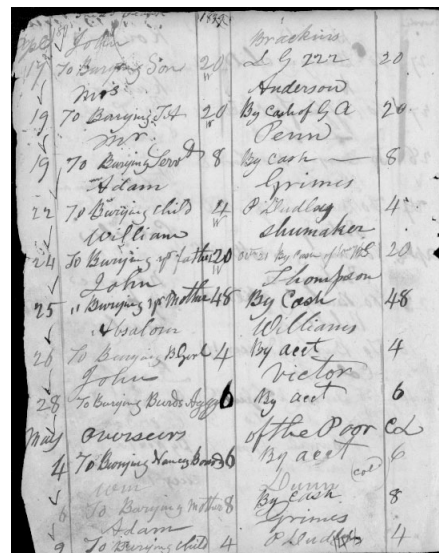 John Brackins
17 To Burying Son 20 L G 222 20
Mrs Anderson
19 To Burying 20 By Cash of G A 20
Mr Penn
19 To Burying Servt 8 By cash — 8
Adam Grimes
22 To Burying child 4 P Dudley 4
William Shumaker
24 To Burying yr father 20 By Cash 20
John Thompson
25 " Burying yr Mother 48 By Cash 48
Absalom Williams
26 To Burying 4 By acct 4
John Victor
28 To Burying 6 By acct 6
May Overseers of the Poor
4 To Burying Nancy 6 By acct 6
Wm Dunn
6 To Burying Mother 8 By Cash 8
Adam Grimes
9 To Burying child 4 P Dudley 4